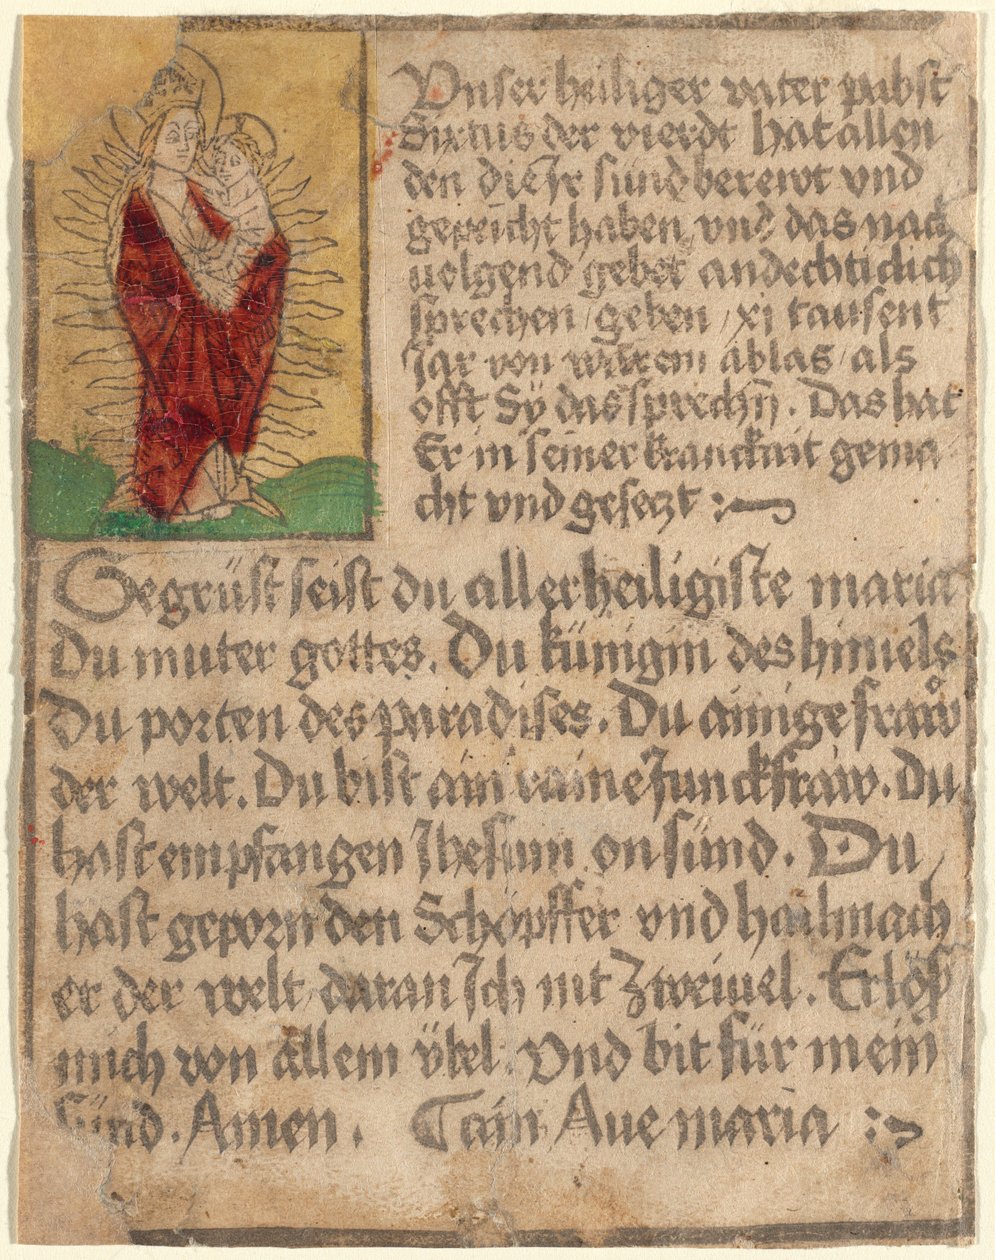 Vnser heiliger vater pabst
Sixtus der vierdt hat allen
den die Jr sünd berewt vnd
gepeicht haben, vnd das nach
uolgend gebet andechticlich
sprechen / geben / xj tausent
Jar von warem ablas / als
offt Sÿ das sprechñ. Das hat
Er in seiner kranckait gema
cht vnd gesetzt :~
Gegrüst seist du allerheiligiste maria
Du muter gottes. Du künigin des himels
Du porten des paradises. Du ainige fraw
der welt. Du bist ain raine Junckfraw. Du
hast empfangen Jhesum on sünd. Du
hast geporn den Schöpffer vnd hailmach
er der welt daran Ich nit Zweiuel. Erlös
mich von allem übel. Vnd bit für mein
Sünd. Amen. Cain Aue maria :~